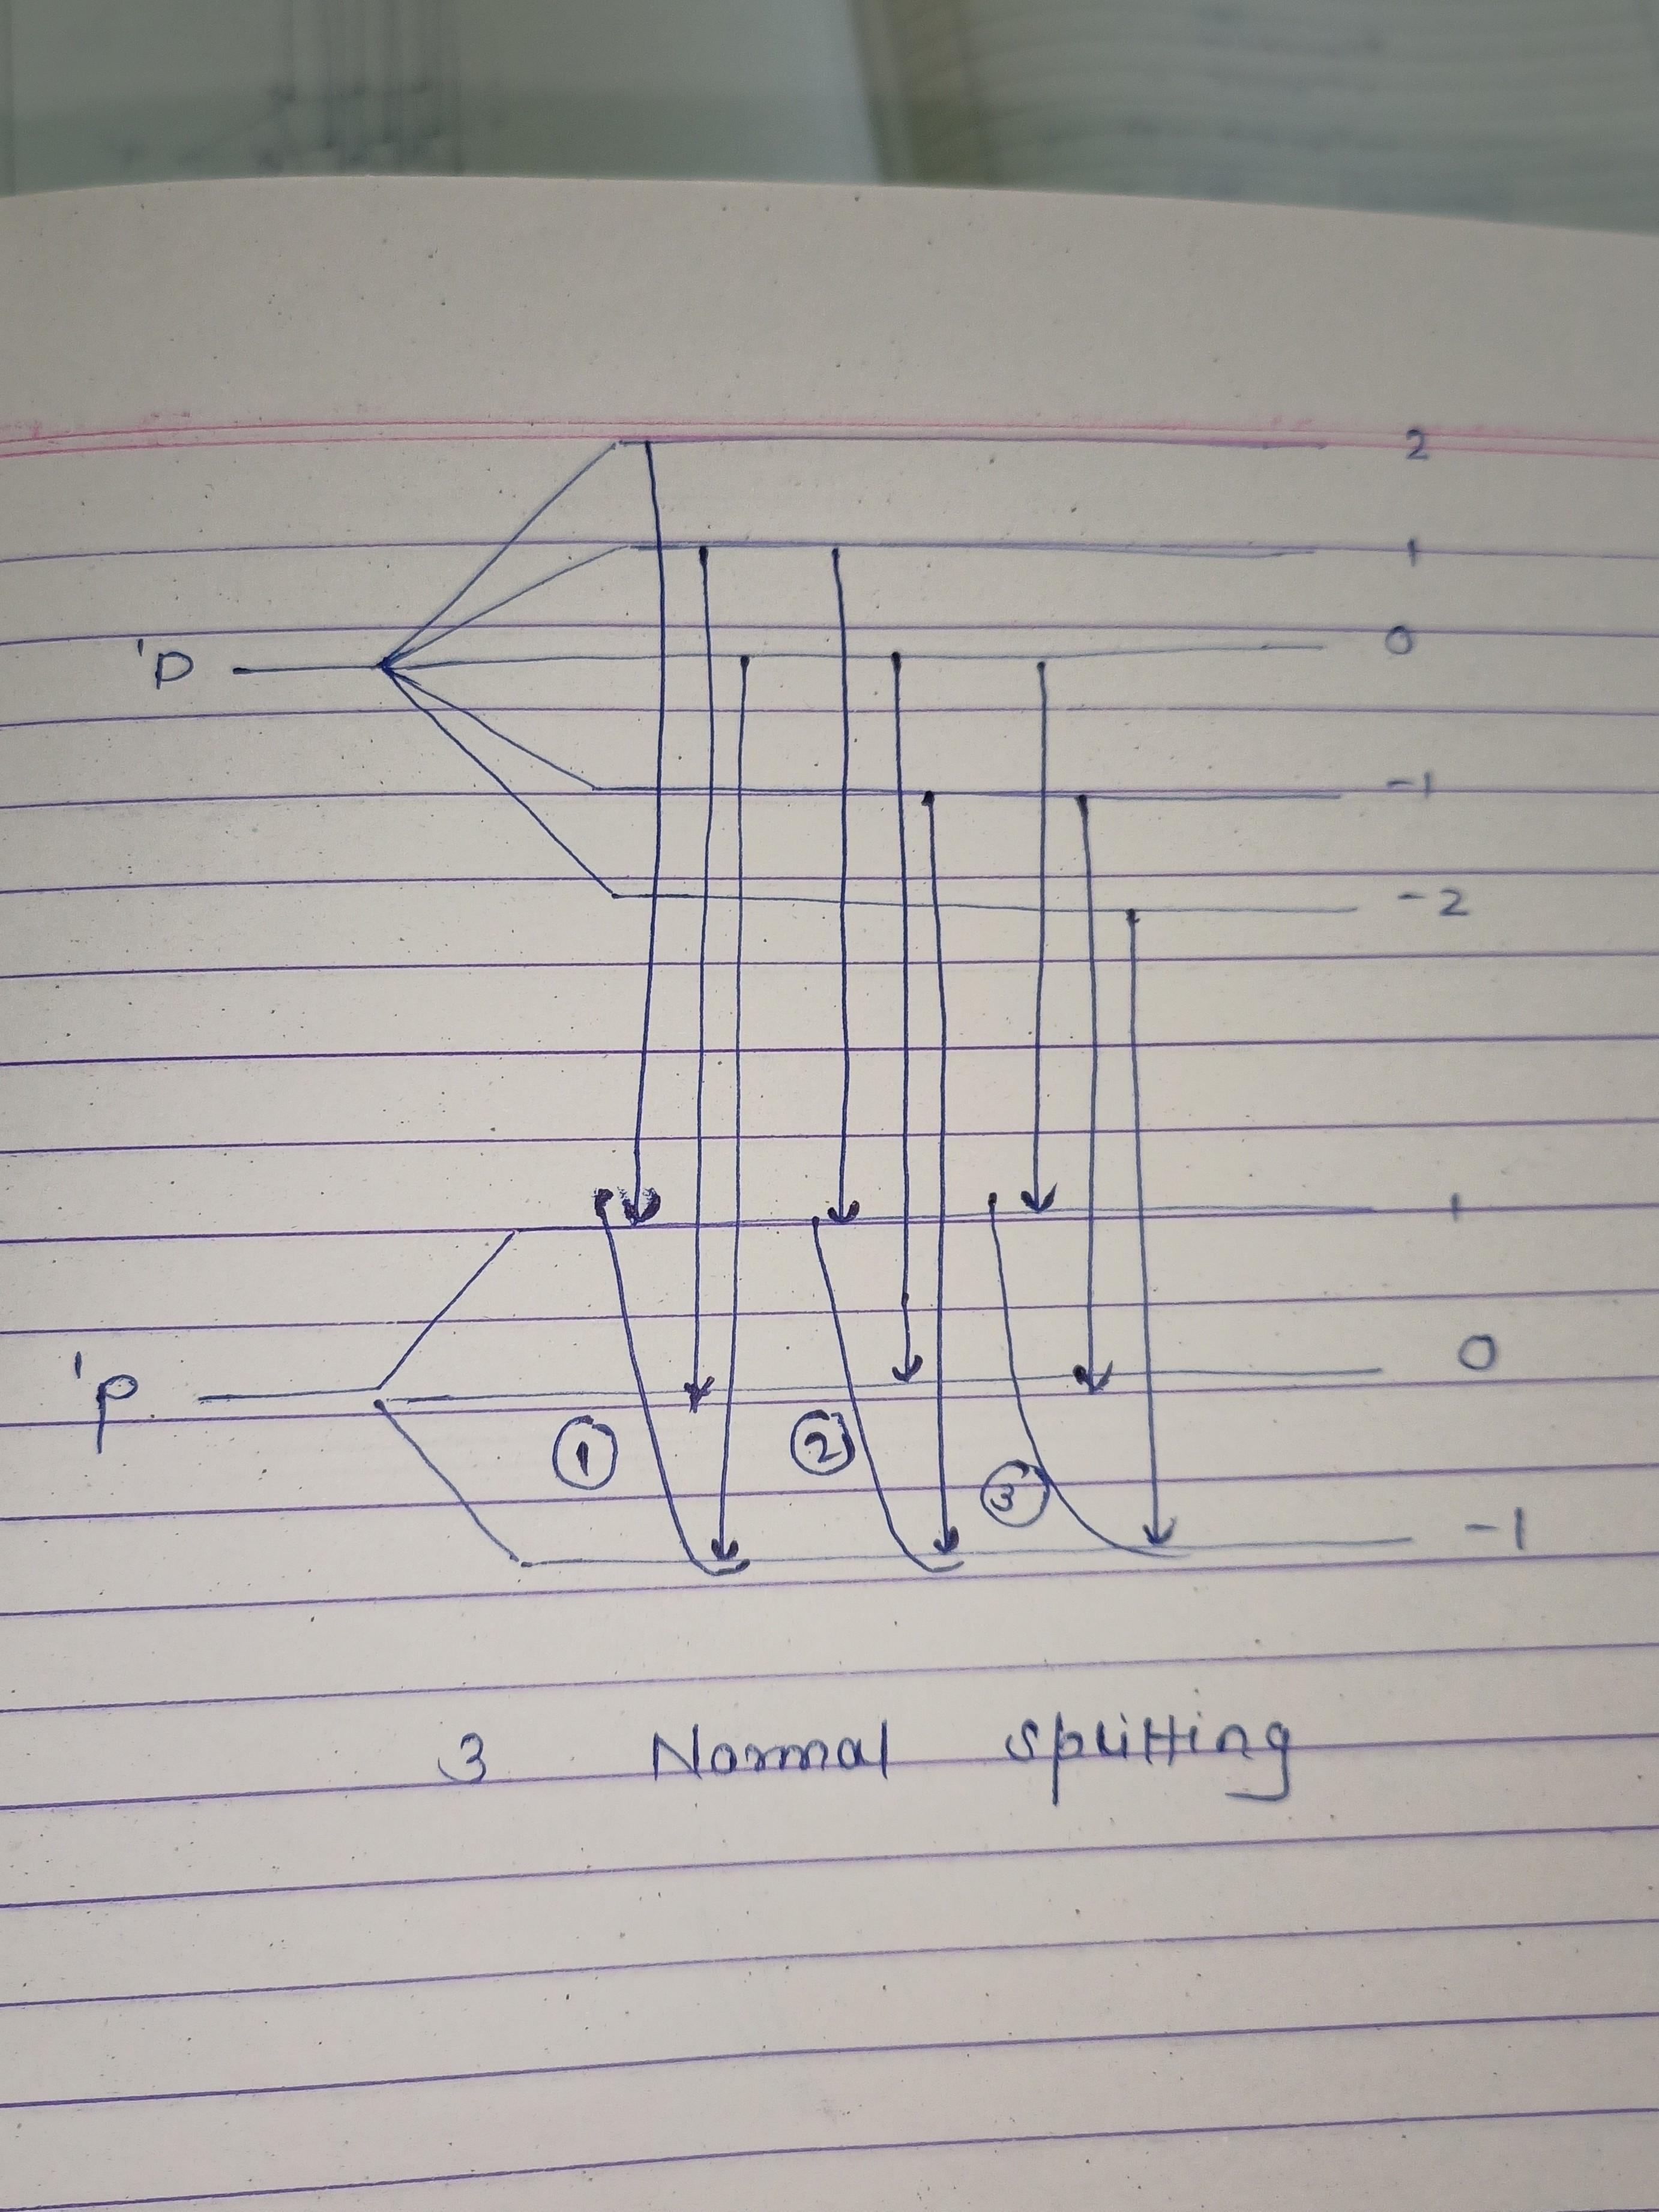 2
1
0
'D
-1
-2
1
0
'P
① ② ③
-1
3 Normal splitting